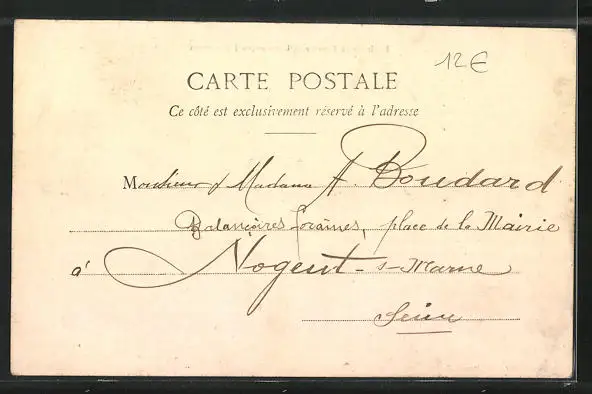 12€
CARTE POSTALE
Ce côté est exclusivement réservé à l'adresse
Monsieur & Madame A. Boudard
Balançoires foraines, place de la Mairie
à Nogent-s-Marne
Seine